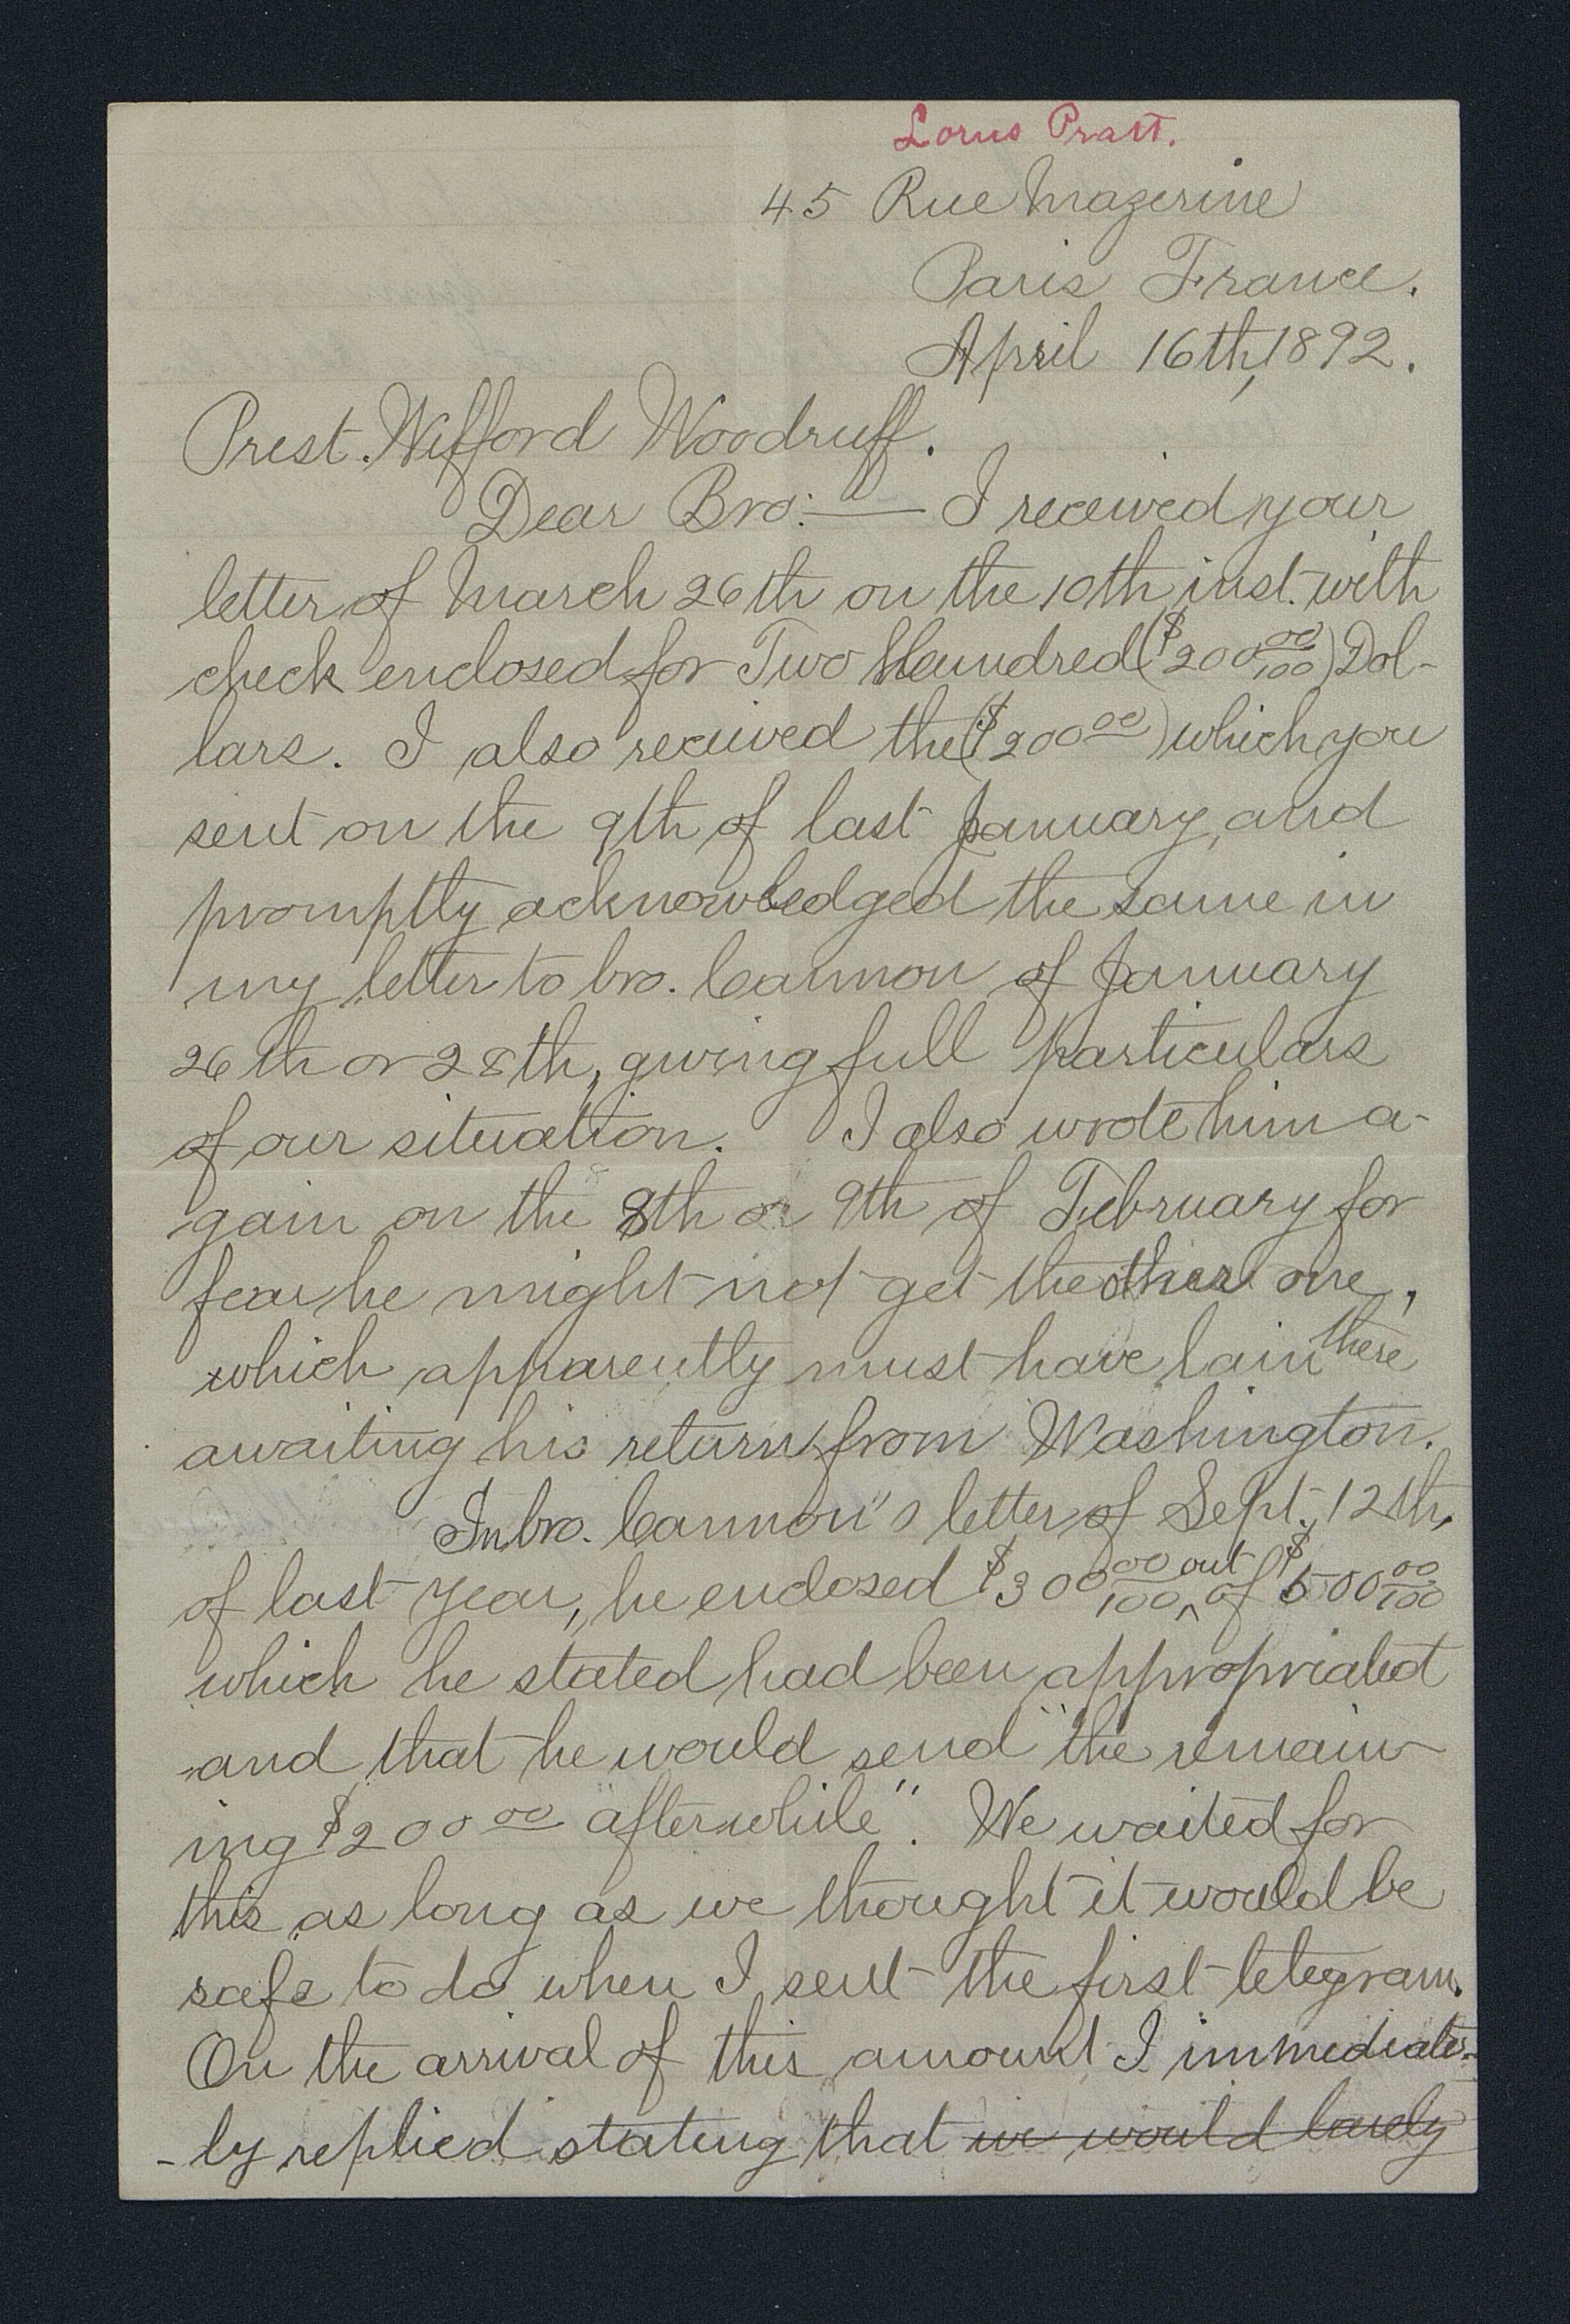 Lorus Pratt.
45 Rue Mazerine
Paris France.
April 16th, 1892.
Prest. Wifford Woodruff.
Dear Bro:— I received your
letter of March 26th on the 10th inst. with
check enclosed for Two Hundred ($200 00/100) Dol-
lars. I also received the ($200 00) which you
sent on the 9th of last January, and
promptly acknowledged the same in
my letter to bro. Cannon of January
26th or 28th, giving full particulars
of our situation. I also wrote him a-
gain on the 8th or 9th of February for
fear he might not get the other one,
which apparently must have lain there
awaiting his return from Washington.
In bro. Cannon's letter of Sept. 12th,
of last year, he enclosed $300 00/100 out of $500 00/100
which he stated had been appropriated
and that he would send "the remain-
ing $200 00 "afterwhile". We waited for
this as long as we thought it would be
safe to do when I sent the first telegram.
On the arrival of this amount I immediate-
-ly replied stating that we would barely